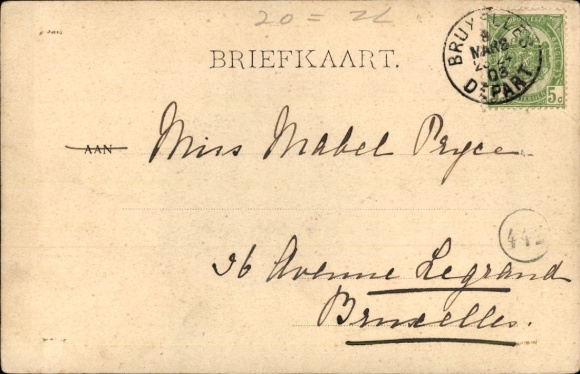 20 =
BRIEFKAART.
BRUXELLES
8
MARS
03
DÉPART
5c
AAN
Miss Mabel Pryce.
442
36 Avenue Legrand
Bruxelles.